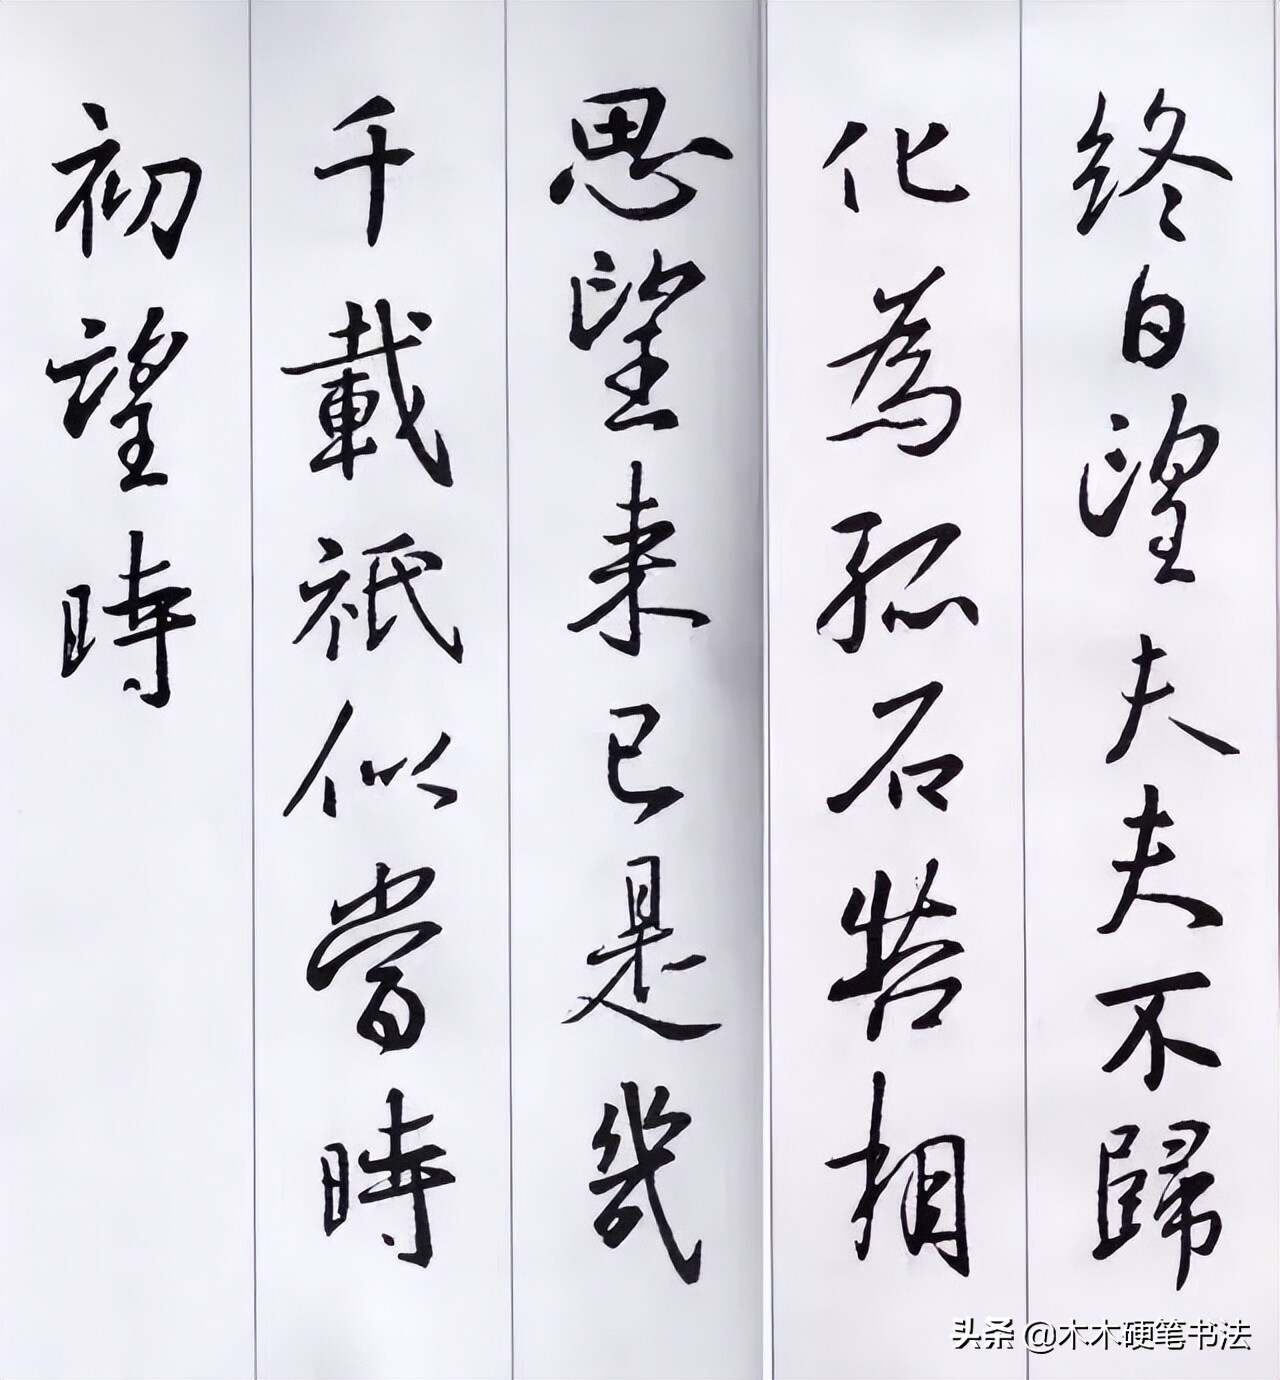 終日望夫夫不歸
化為孤石苦相
思望来已是幾
千載祇似當時
初望時
头条 @木木硬笔书法